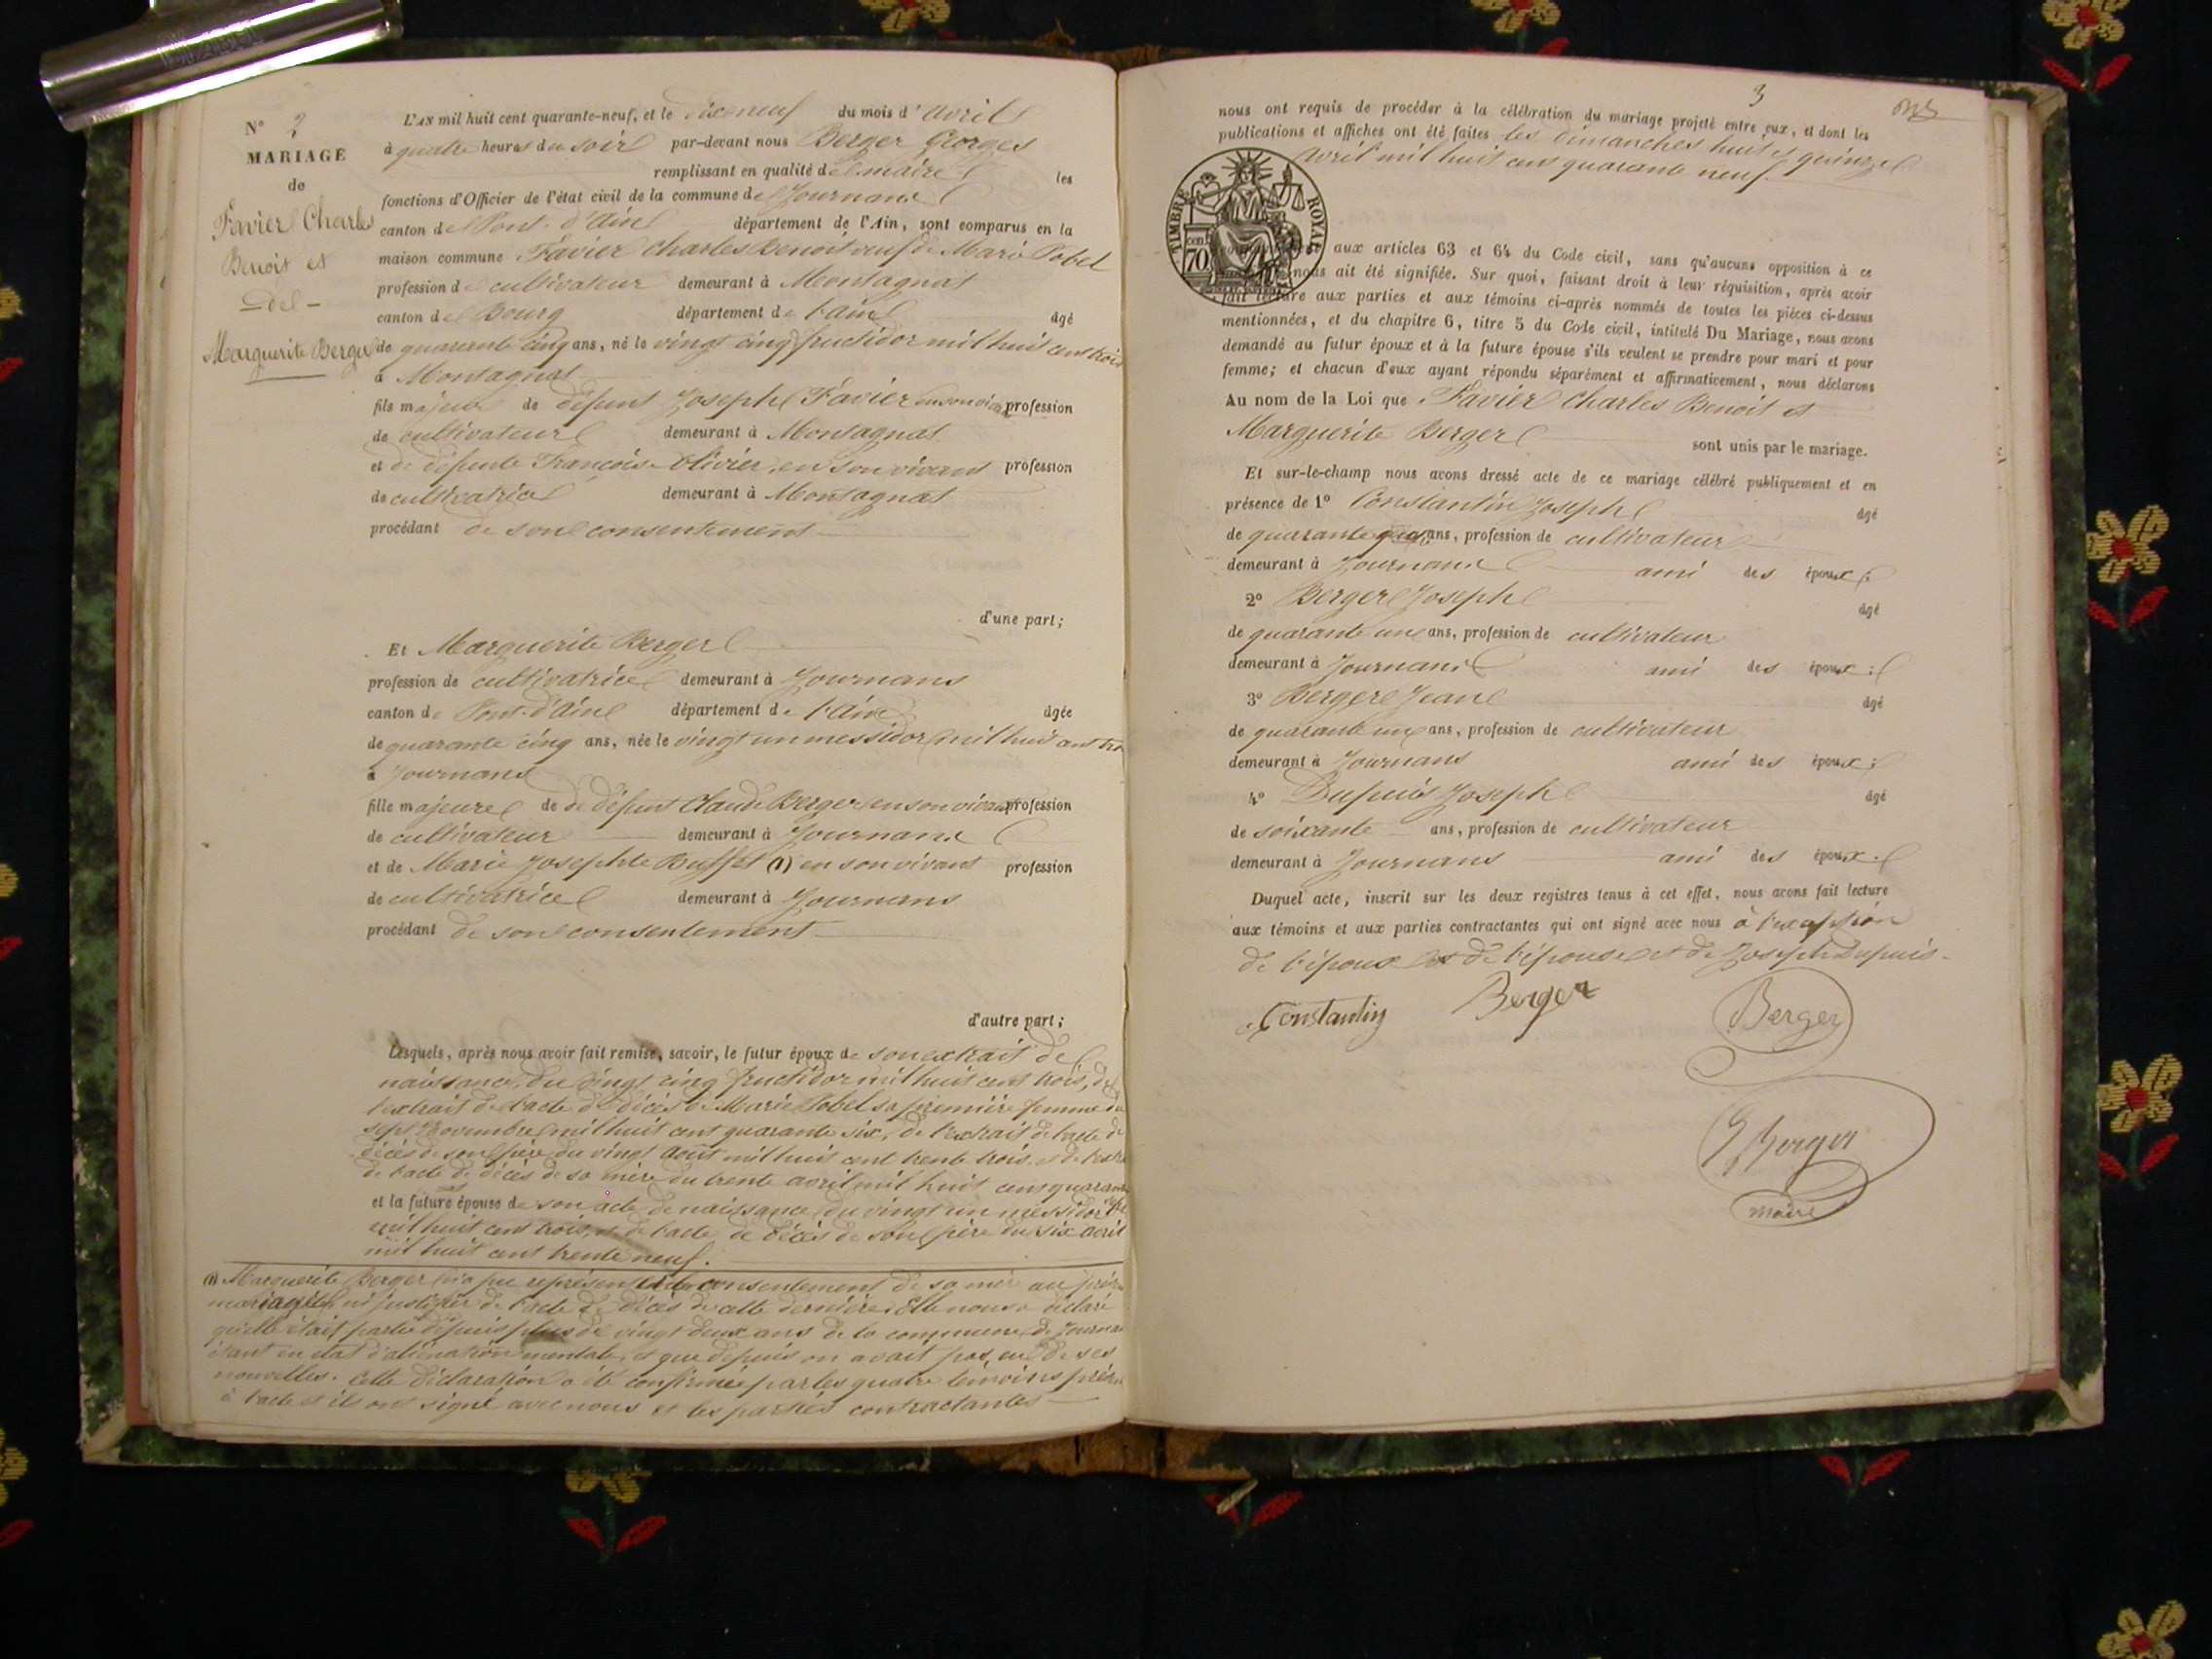 N° 2
MARIAGE
de
Favier Charles
Benoit et
de
Marguerite Berger
L'AN mil huit cent quarante-neuf, et le dix neuf du mois d'avril
à quatre heures du soir par-devant nous Berger Georges
remplissant en qualité de maire les
fonctions d'Officier de l'état civil de la commune de Journans
canton de Pont-d'Ain département de l'Ain, sont comparus en la
maison commune Favier Charles Benoit veuf de Marie Pobel
profession de cultivateur demeurant à Montagnat
canton de Bourg département de l'ain âgé
de quarante cinq ans, né le vingt cinq fructidor mil huit cent trois
à Montagnat
fils majeur de défunt Joseph Favier en son vivant profession
de cultivateur demeurant à Montagnat
et de défunte Françoise Olivier, en son vivant profession
de cultivatrice demeurant à Montagnat
procédant de son consentement
d'une part;
Et Marguerite Berger
profession de cultivatrice demeurant à Journans
canton de Pont-d'Ain département de l'Ain âgée
de quarante cinq ans, née le vingt un messidor mil huit cent
à Journans
fille majeure de de défunt Claude Berger en son vivant profession
de cultivateur demeurant à Journans
et de Marie Josephte Buffet (1) en son vivant profession
de cultivatrice demeurant à Journans
procédant de son consentement
d'autre part;
Lesquels, après nous avoir fait remise, savoir, le futur époux de son extrait de
naissance, du vingt cinq fructidor mil huit cent trois, de
l'extrait de l'acte de décès de Marie Pobel sa première femme du
sept novembre mil huit cent quarante six, de l'extrait de l'acte de
décès de son père du vingt août mil huit cent trente trois, et de
de l'acte de décès de sa mère du trente avril mil huit cent
et la future épouse de son acte de naissance du vingt un messidor
mil huit cent trois, et de l'acte de décès de son père du six avril
mil huit cent trente neuf.
(1) Marguerite Berger n'a pu représenter le consentement de sa mère au
mariage, ni justifier de l'acte de décès de cette dernière. Elle nous a déclaré
qu'elle était partie depuis plus de vingt deux ans de la commune de
étant en état d'aliénation mentale, et que depuis on avait pas eu de ses
nouvelles. Cette déclaration a été confirmée par les quatre témoins
à l'acte et ils ont signé avec nous et les parties contractantes
3
nous ont requis de procéder à la célébration du mariage projeté entre eux, et dont les
publications et affiches ont été faites les dimanches huit et quinze
avril mil huit cent quarante neuf
TIMBRE ROYAL
70
aux articles 63 et 64 du Code civil, sans qu'aucune opposition à ce
nous ait été signifiée. Sur quoi, faisant droit à leur réquisition, après avoir
fait lecture aux parties et aux témoins ci-après nommés de toutes les pièces ci-dessus
mentionnées, et du chapitre 6, titre 5 du Code civil, intitulé Du Mariage, nous avons
demandé au futur époux et à la future épouse s'ils veulent se prendre pour mari et pour
femme; et chacun d'eux ayant répondu séparément et affirmativement, nous déclarons
Au nom de la Loi que Favier Charles Benoit et
Marguerite Berger sont unis par le mariage.
Et sur-le-champ nous avons dressé acte de ce mariage célébré publiquement et en
présence de 1° Constantin Joseph âgé
de quarante ans, profession de cultivateur
demeurant à Journans ami des époux;
2° Berger Joseph âgé
de quarante un ans, profession de cultivateur
demeurant à Journans ami des époux;
3° Berger Jean âgé
de quarante un ans, profession de cultivateur
demeurant à Journans ami des époux;
4° Dupuis Joseph âgé
de soixante ans, profession de cultivateur
demeurant à Journans ami des époux.
Duquel acte, inscrit sur les deux registres tenus à cet effet, nous avons fait lecture
aux témoins et aux parties contractantes qui ont signé avec nous à l'exception
de l'époux et de l'épouse et de Joseph Dupuis.
Constantin Berger Berger
G Berger
maire